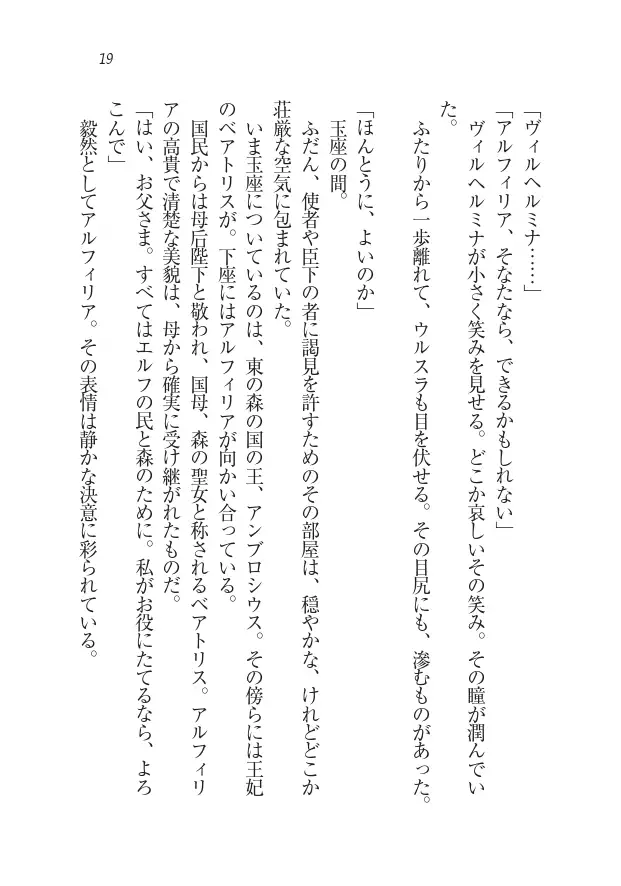 19
「ヴィルヘルミナ……」
「アルフィリア、そなたなら、できるかもしれない」
　ヴィルヘルミナが小さく笑みを見せる。どこか哀しいその笑み。その瞳が潤んでい
た。
　ふたりから一歩離れて、ウルスラも目を伏せる。その目尻にも、滲むものがあった。
「ほんとうに、よいのか」
　玉座の間。
　ふだん、使者や臣下の者に謁見を許すためのその部屋は、穏やかな、けれどどこか
荘厳な空気に包まれていた。
　いま玉座についているのは、東の森の国の王、アンブロシウス。その傍らには王妃
のベアトリスが。下座にはアルフィリアが向かい合っている。
　国民からは母后陛下と敬われ、国母、森の聖女と称されるベアトリス。アルフィリ
アの高貴で清楚な美貌は、母から確実に受け継がれたものだ。
「はい、お父さま。すべてはエルフの民と森のために。私がお役にたてるなら、よろ
こんで」
　毅然としてアルフィリア。その表情は静かな決意に彩られている。